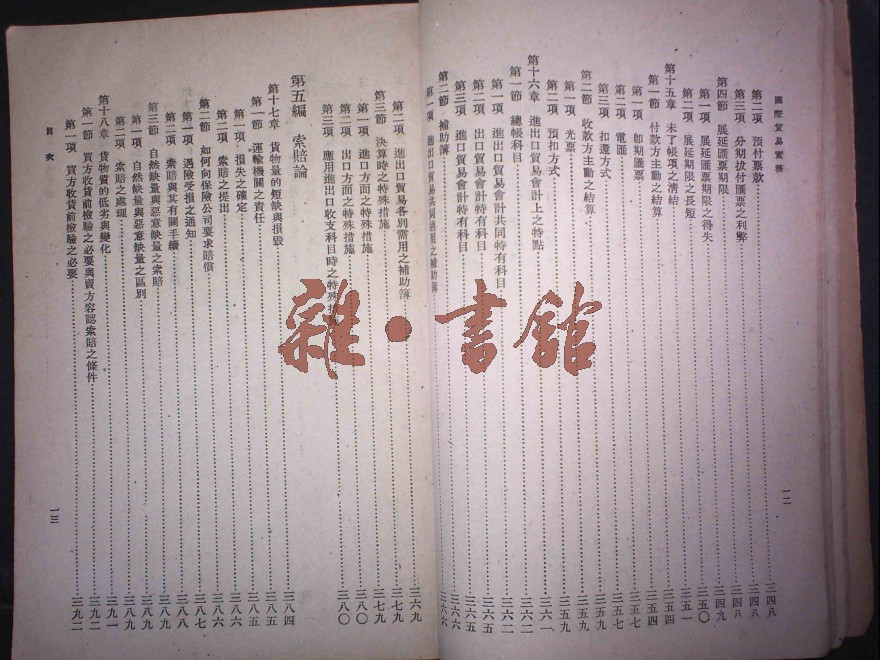 國際貿易實務
一二
第二項 預付票款 三四八
第三項 分期拔付匯票之利弊 三四八
第四節 展延匯票期限 三四九
第一項 展延匯票期限之得失 三五〇
第二項 展延期限之長短 三五一
第十五章 未了帳項之清結 三五四
第一節 付款方主動之結算 三五四
第一項 卽期匯票 三五七
第二項 電匯 三五七
第三項 扣還方式 三五九
第二節 收款方主動之結算 三五九
第一項 光票 三五九
第二項 預扣方式 三六一
第十六章 進出口貿易會計上之特點 三六二
第一節 總帳科目 三六二
第一項 進出口貿易會計共同特有科目 三六二
第二項 出口貿易會計特有科目 三六五
第三項 進口貿易會計特有科目 三六六
第二節 補助簿 三六六
第一項 進出口貿易共同適用之補助簿
第二項 進出口貿易各別需用之補助簿 三六九
第三節 決算時之特殊措施 三七九
第一項 進口方面之特殊措施 三七九
第二項 出口方面之特殊措施 三八〇
第三項 應用進出口收支科目時之特殊措 三八〇
第五編 索賠論
第十七章 貨物量的短缺與損毀 三八四
第一節 運輸機關之責任 三八五
第一項 損失之確定 三八五
第二項 索賠之提出 三八六
第二節 如何向保險公司要求賠償 三八六
第一項 遇險受損之通知 三八七
第二項 索賠與其有關手續 三八八
第三節 自然缺量與惡意缺量之索賠 三八八
第一項 自然缺量與惡意缺量之區別 三八九
第二項 索賠之處理 三八九
第十八章 貨物質的低劣與變化 三九一
第一節 買方收貨前檢驗之必要與賣方容認索賠之條件 三九二
第一項 買方收貨前檢驗之必要 三九二
目次
一三
雜·書館